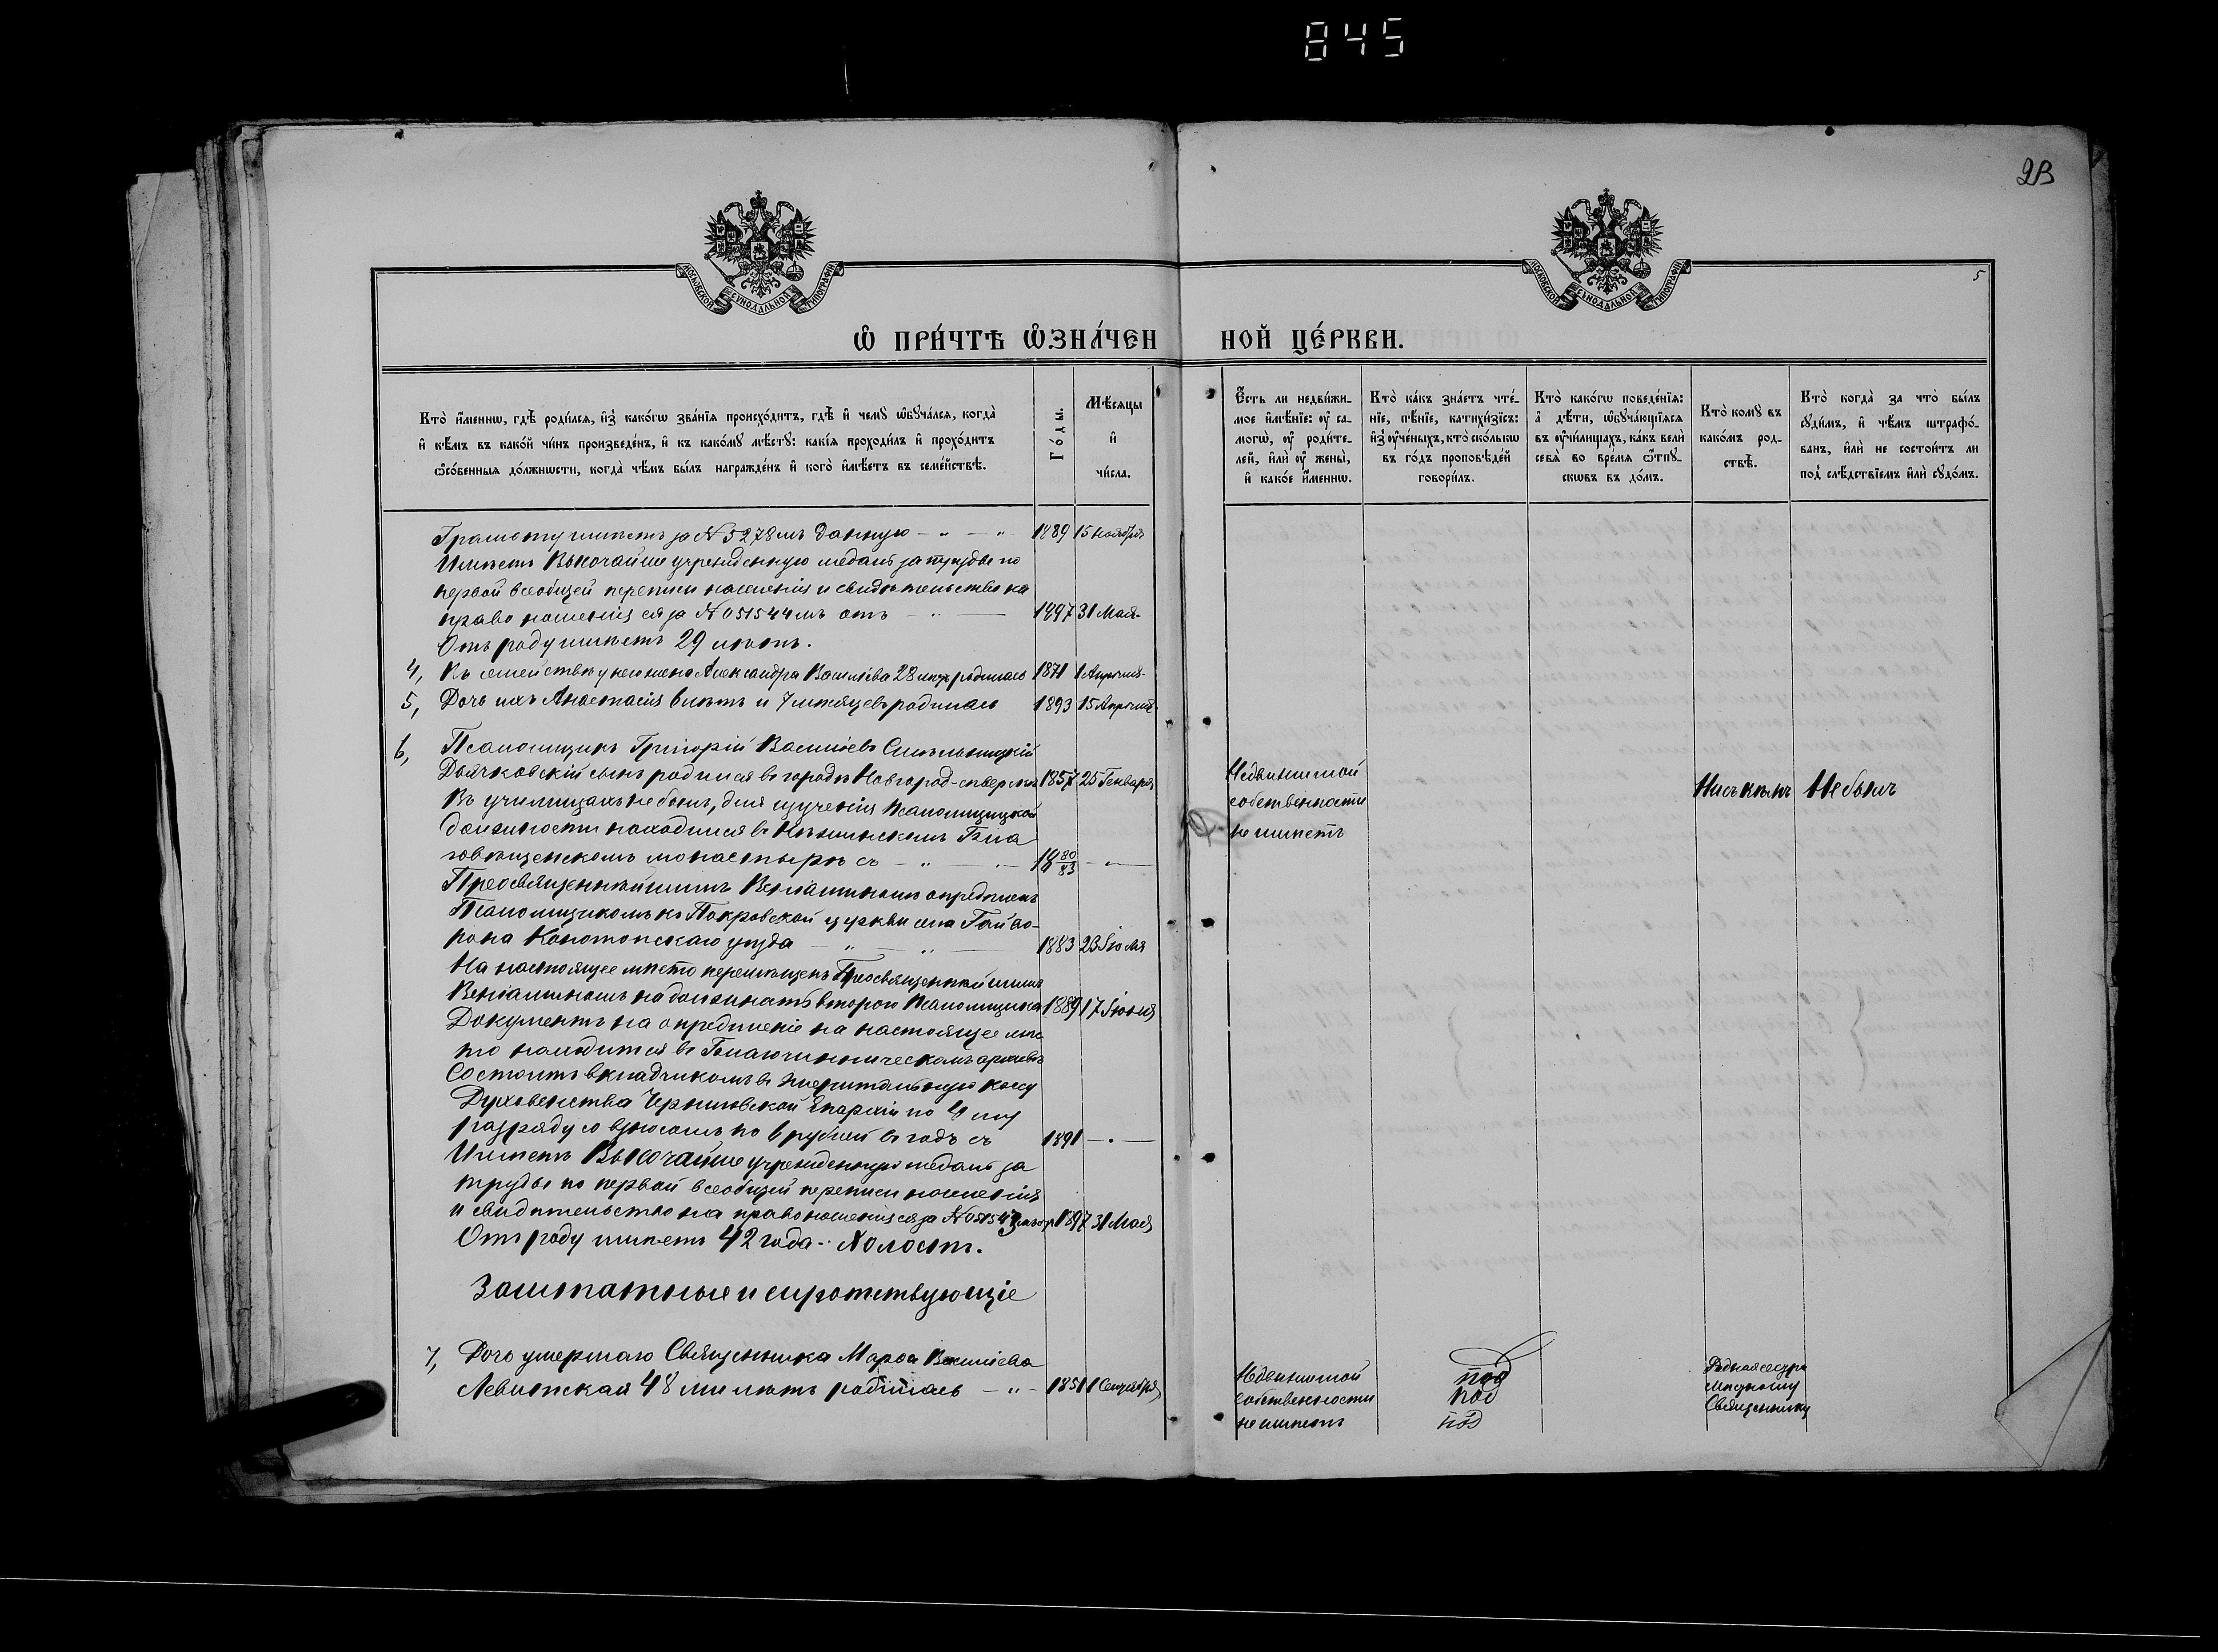 845
23
5
МОСКОВСКОЙ СѴНОДАЛЬНОЙ ТИПОГРАФІИ
МОСКОВСКОЙ СѴНОДАЛЬНОЙ ТИПОГРАФІИ
Ѡ ПРИ́ЧТѢ ѠЗНА́ЧЕН НОЙ ЦЕ́РКВИ.
Кто̀ и҆́меннѡ, гдѣ̀ роди́лся, и҆з̾ како́гѡ зва́нїѧ происхо́дитъ, гдѣ̀ и҆ чемꙋ̀ ѡ҆бꙋча́лся, когда̀
и҆ кѣ́мъ въ како́й чи́нъ произведе́нъ, и҆ къ како́мꙋ мѣ́стꙋ: какі́ѧ проходи́лъ и҆ прохо́дитъ
ѻ҆со́бенныѧ до́лжнѡсти, когда̀ чѣ́мъ бы́лъ награжде́нъ и҆ кого̀ и҆мѣ́етъ въ семе́йствѣ.
Го́ды.
Мѣ́сяцы
и҆
чи́сла.
Є҆́сть ли недви́жи-
мое и҆мѣ́нїе: ᲂу҆ са-
могѡ̀, ᲂу҆ роди́те-
лей, и҆лѝ ᲂу҆ жены̀,
и҆ како́е и҆́меннѡ.
Кто̀ ка́къ зна́етъ чте́-
нїе, пѣ́нїе, катихи́зїсъ:
и҆з̾ ᲂу҆че́ныхъ, кто̀ ско́лькѡ
въ го́дъ проповѣ́дей
говори́лъ.
Кто̀ како́гѡ поведе́нїѧ:
а҆ дѣ́ти, ѡ҆бꙋча́ющїѧсѧ
въ ᲂу҆чи́лищахъ, ка́къ велѝ
себѧ̀ во вре́мѧ ѿпꙋ-
скѡвъ въ до́мъ.
Кто̀ комꙋ̀ въ
како́мъ род-
ствѣ̀.
Кто̀ когда̀ за что̀ бы́лъ
сꙋди́мъ, и҆ чѣ́мъ штрафо́-
ванъ, и҆лѝ не состои́тъ ли
под̾ слѣ́дствїемъ и҆лѝ сꙋдо́мъ.
Грамоту имѣетъ за № 5278мъ данную — " — " 1889 15 Ноября
Имѣетъ Высочайше учрежденную медаль за труды по
первой всеобщей переписи населенія и свидѣтельство на
право ношенія ея за № 051544мъ отъ — " — 1897 31 Мая
Отъ роду имѣетъ 29 лѣтъ.
4, Въ семействѣ у него жена Александра Васильева 28 лѣтъ родилась 1871 1 Апрѣля
5, Дочь ихъ Анастасія 6 лѣтъ и 7 мѣсяцевъ родилась 1893 15 Апрѣля
6, Псаломщикъ Григорій Васильевъ
Дьячковскій сынъ родился въ городѣ Новгород-сѣверскѣ 1857 25 Генваря
Въ училищахъ не былъ, для изученія псаломщицкой
должности находился въ Нѣжинскомъ Бла
говѣщенскомъ монастырѣ съ — " — 18 80/83 — " —
Преосвященнѣйшимъ Веніаминомъ опредѣленъ
Псаломщикомъ къ Покровской церкви села Гайво-
рона Конотопскаго уѣзда — " — " — 1883 23 Іюля
На настоящее мѣсто перемѣщенъ Преосвященнѣйшимъ
Веніаминомъ на должность второго Псаломщика 1889 17 Іюня
Документъ на опредѣленіе на настоящее мѣс
то находится въ Благочинническомъ архивѣ
Состоитъ вкладчикомъ въ эмеритальную кассу
Духовенства Черниговской Епархіи по му
разряду со взносомъ по 6 рублей въ годъ съ 1891 — " —
Имѣетъ Высочайше учрежденную медаль за
труды по первой всеобщей переписи населенія
и свидѣтельство на право ношенія ея за № 051543мъ отъ 1897 31 Мая
Отъ роду имѣетъ 42 года. Холостъ.
Недвижимой
собственности
не имѣетъ
Ни съ кѣмъ
Не былъ
Заштатные и сиротствующіе
7, Дочь умершаго Священника Марѳа Васильева
Левитская 48ми лѣтъ родилась — " — 1851 1 Сентября
Недвижимой
собственности
не имѣетъ
Родная сестра
мѣстному
Священнику